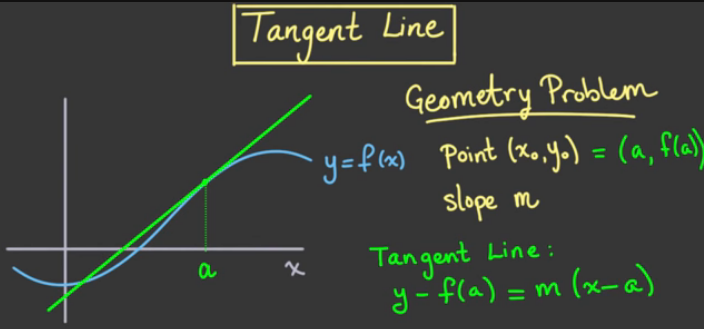 Tangent Line
Geometry Problem
y=f(x)
Point (x₀,y₀) = (a, f(a))
slope m
a
x
Tangent Line:
y-f(a) = m (x-a)